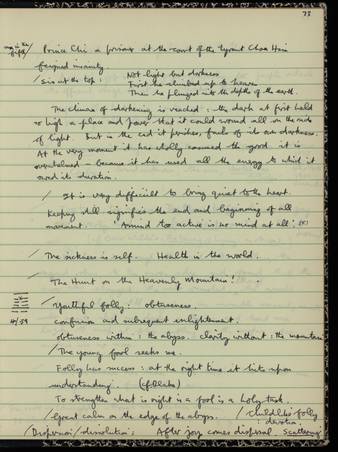 73
Prince Chi a prisoner at the court of the tyrant Chou Hsin
feigned insanity
/ Six at the top: Not light but darkness
First he climbed up to heaven
Then he plunged into the depths of the earth.
The climax of darkening is reached: the dark at first held
so high a place and power that it could wound all on the side
of light. But in the end it perishes, of its own darkness.
At the very moment it has wholly consumed the good it is
overwhelmed - because it has used all the energy to which it
owed its duration.
/ It is very difficult to bring quiet to the heart
Keeping still signifies the end and beginning of all
movement. A mind too active is no mind at all:
/ The sickness is self. Health is the world.
The Hunt on the Heavenly Mountain!
/ Youthful folly: obtuseness.
4/59 confusion and subsequent enlightenment.
obtuseness within: the abyss. clarity without: the mountain
/ The young fool seeks me.
Folly has success: at the right time it hits upon
understanding.
To strengthen what is right in a fool is a holy task.
/ Great calm on the edge of the abyss. / childlike folly
: devotion
/ Dispersion/dissolution: After joy comes dispersal. Scattering